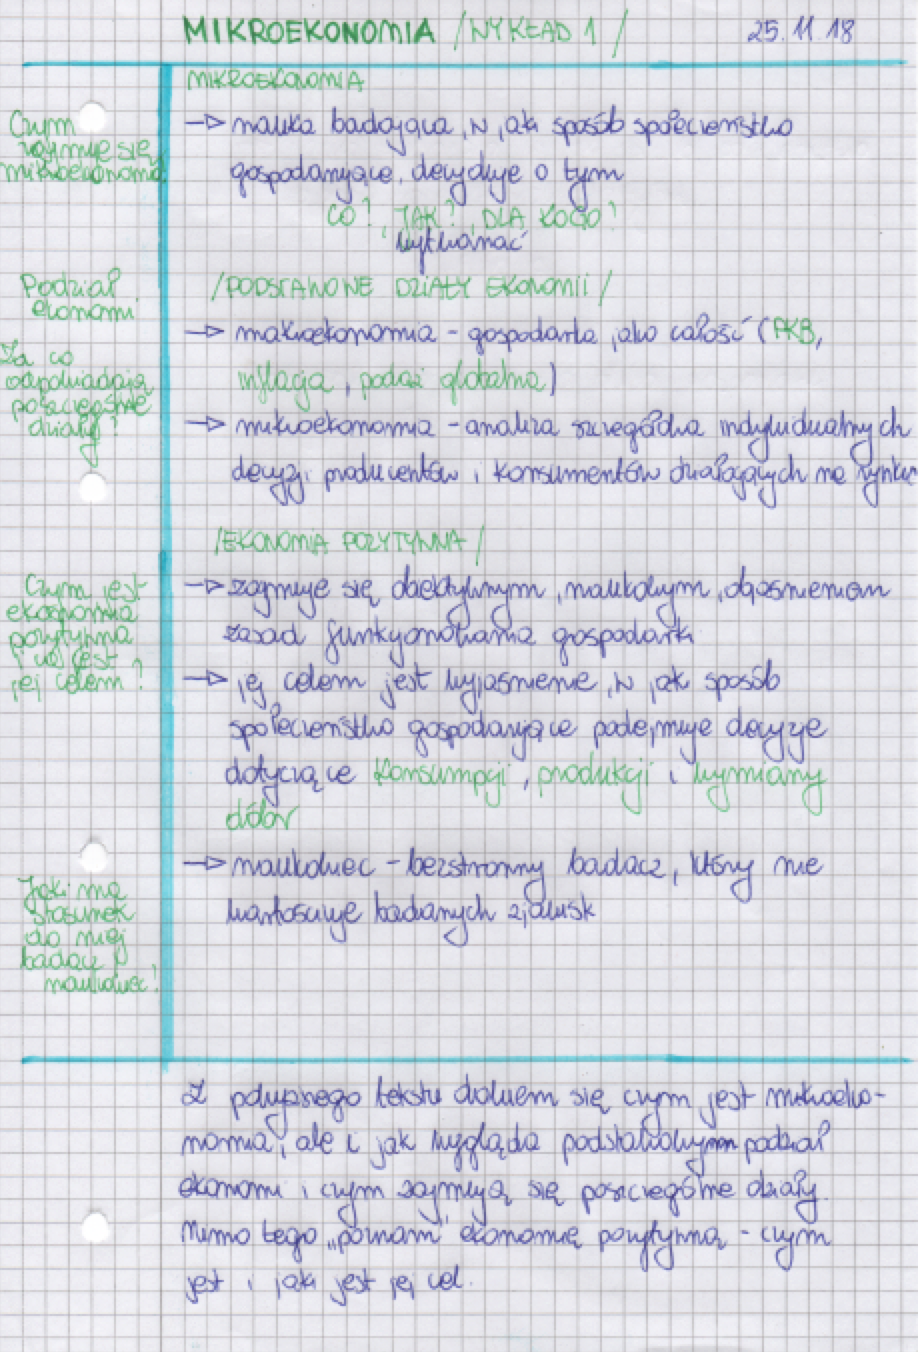 MIKROEKONOMIA /WYKŁAD 1/ 25.11.18
MIKROEKONOMIA
Czym zajmuje się mikroekonomia
→ nauka badająca, w jaki sposób społeczeństwo
gospodarujące, decyduje o tym
CO?, JAK?, DLA KOGO?
wytwarzać
Podział
ekonomi
/PODSTAWOWE DZIAŁY EKONOMII/
→ makroekonomia - gospodarka jako całość (PKB,
inflacja, podaż globalna)
Za co
odpowiadają
poszczególne
działy?
→ mikroekonomia - analiza szczegółowa indywidualnych
decyzji producentów i konsumentów działających na rynku
/EKONOMIA POZYTYWNA/
Czym jest
ekonomia
pozytywna
i co jest
jej celem?
→ zajmuje się obiektywnym, naukowym, objaśnieniem
zasad funkcjonowania gospodarki
→ jej celem jest wyjaśnienie, w jaki sposób
społeczeństwo gospodarujące podejmuje decyzje
dotyczące konsumpcji, produkcji i wymiany
dóbr
Jaki ma
stosunek
do niej
badacz
naukowiec?
→ naukowiec - bezstronny badacz, który nie
wartościuje badanych zjawisk
Z powyższego tekstu dowiem się czym jest mikroeko-
nomia, ale i jak wygląda podstawowym podział
ekonomi i czym zajmują się poszczególne działy.
Mimo tego „poznam" ekonomię pozytywną - czym
jest i jaki jest jej cel.